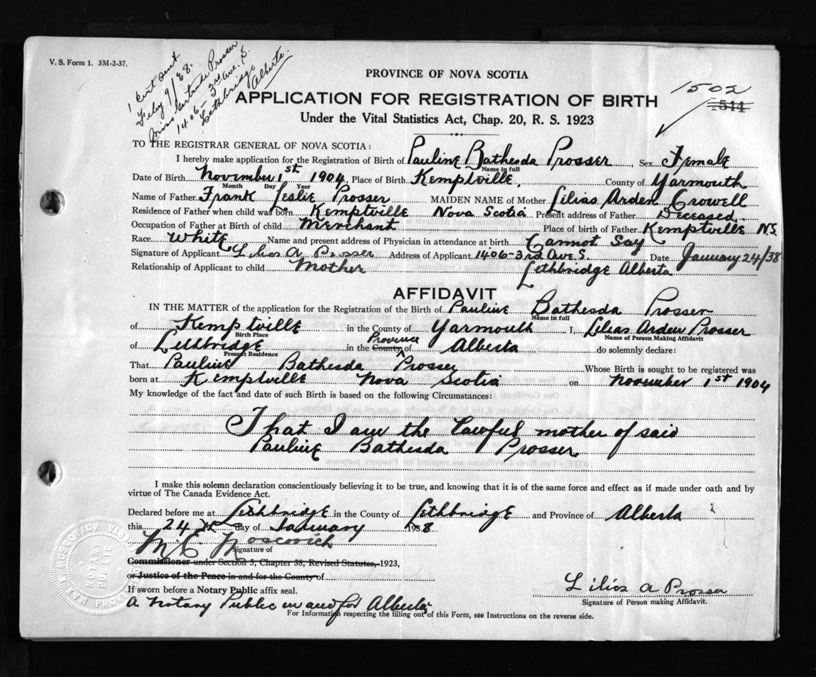 V. S. Form 1. 3M-2-37.
1 Cert sent
Feby 9/38.
Miss Gertrude Prosser
1406-3rd Ave. S.
Lethbridge
Alberta.
PROVINCE OF NOVA SCOTIA
1502
544
APPLICATION FOR REGISTRATION OF BIRTH
Under the Vital Statistics Act, Chap. 20, R. S. 1923
TO THE REGISTRAR GENERAL OF NOVA SCOTIA:
I hereby make application for the Registration of Birth of Pauline Bathesda Prosser Sex Female
Name in full
Date of Birth November 1st 1904 Place of Birth Kemptville, County of Yarmouth
Month Day Year
Name of Father Frank Leslie Prosser MAIDEN NAME of Mother Lilias Arden Crowell
Residence of Father when child was born Kemptville Nova Scotia Present address of Father Deceased.
Occupation of Father at Birth of child Merchant Place of birth of Father Kemptville N.S.
Race White Name and present address of Physician in attendance at birth Cannot Say
Signature of Applicant Lilias A Prosser Address of Applicant 1406-3rd Ave S. Date January 24/38
Relationship of Applicant to child Mother Lethbridge Alberta
AFFIDAVIT
IN THE MATTER of the application for the Registration of the Birth of Pauline Bathesda Prosser
Name in full
of Kemptville in the County of Yarmouth I, Lilias Arden Prosser
Birth Place Name of Person Making Affidavit
of Lethbridge in the County Province of Alberta do solemnly declare:
Present Residence
That Pauline Bathesda Prosser Whose Birth is sought to be registered was
born at Kemptville Nova Scotia on November 1st 1904
My knowledge of the fact and date of such Birth is based on the following Circumstances:
That I am the lawful mother of said
Pauline Bathesda Prosser
I make this solemn declaration conscientiously believing it to be true, and knowing that it is of the same force and effect as if made under oath and by
virtue of The Canada Evidence Act.
Declared before me at Lethbridge in the County of Lethbridge and Province of Alberta
this 24th day of January 1938
Signature of
Commissioner under Section 5, Chapter 38, Revised Statutes, 1923,
or Justice of the Peace in and for the County of
If sworn before a Notary Public affix seal.
A Notary Public in and for Alberta
Lilias A Prosser
Signature of Person making Affidavit.
For Information respecting the filling out of this Form, see Instructions on the reverse side.
NOTARY
PUBLIC